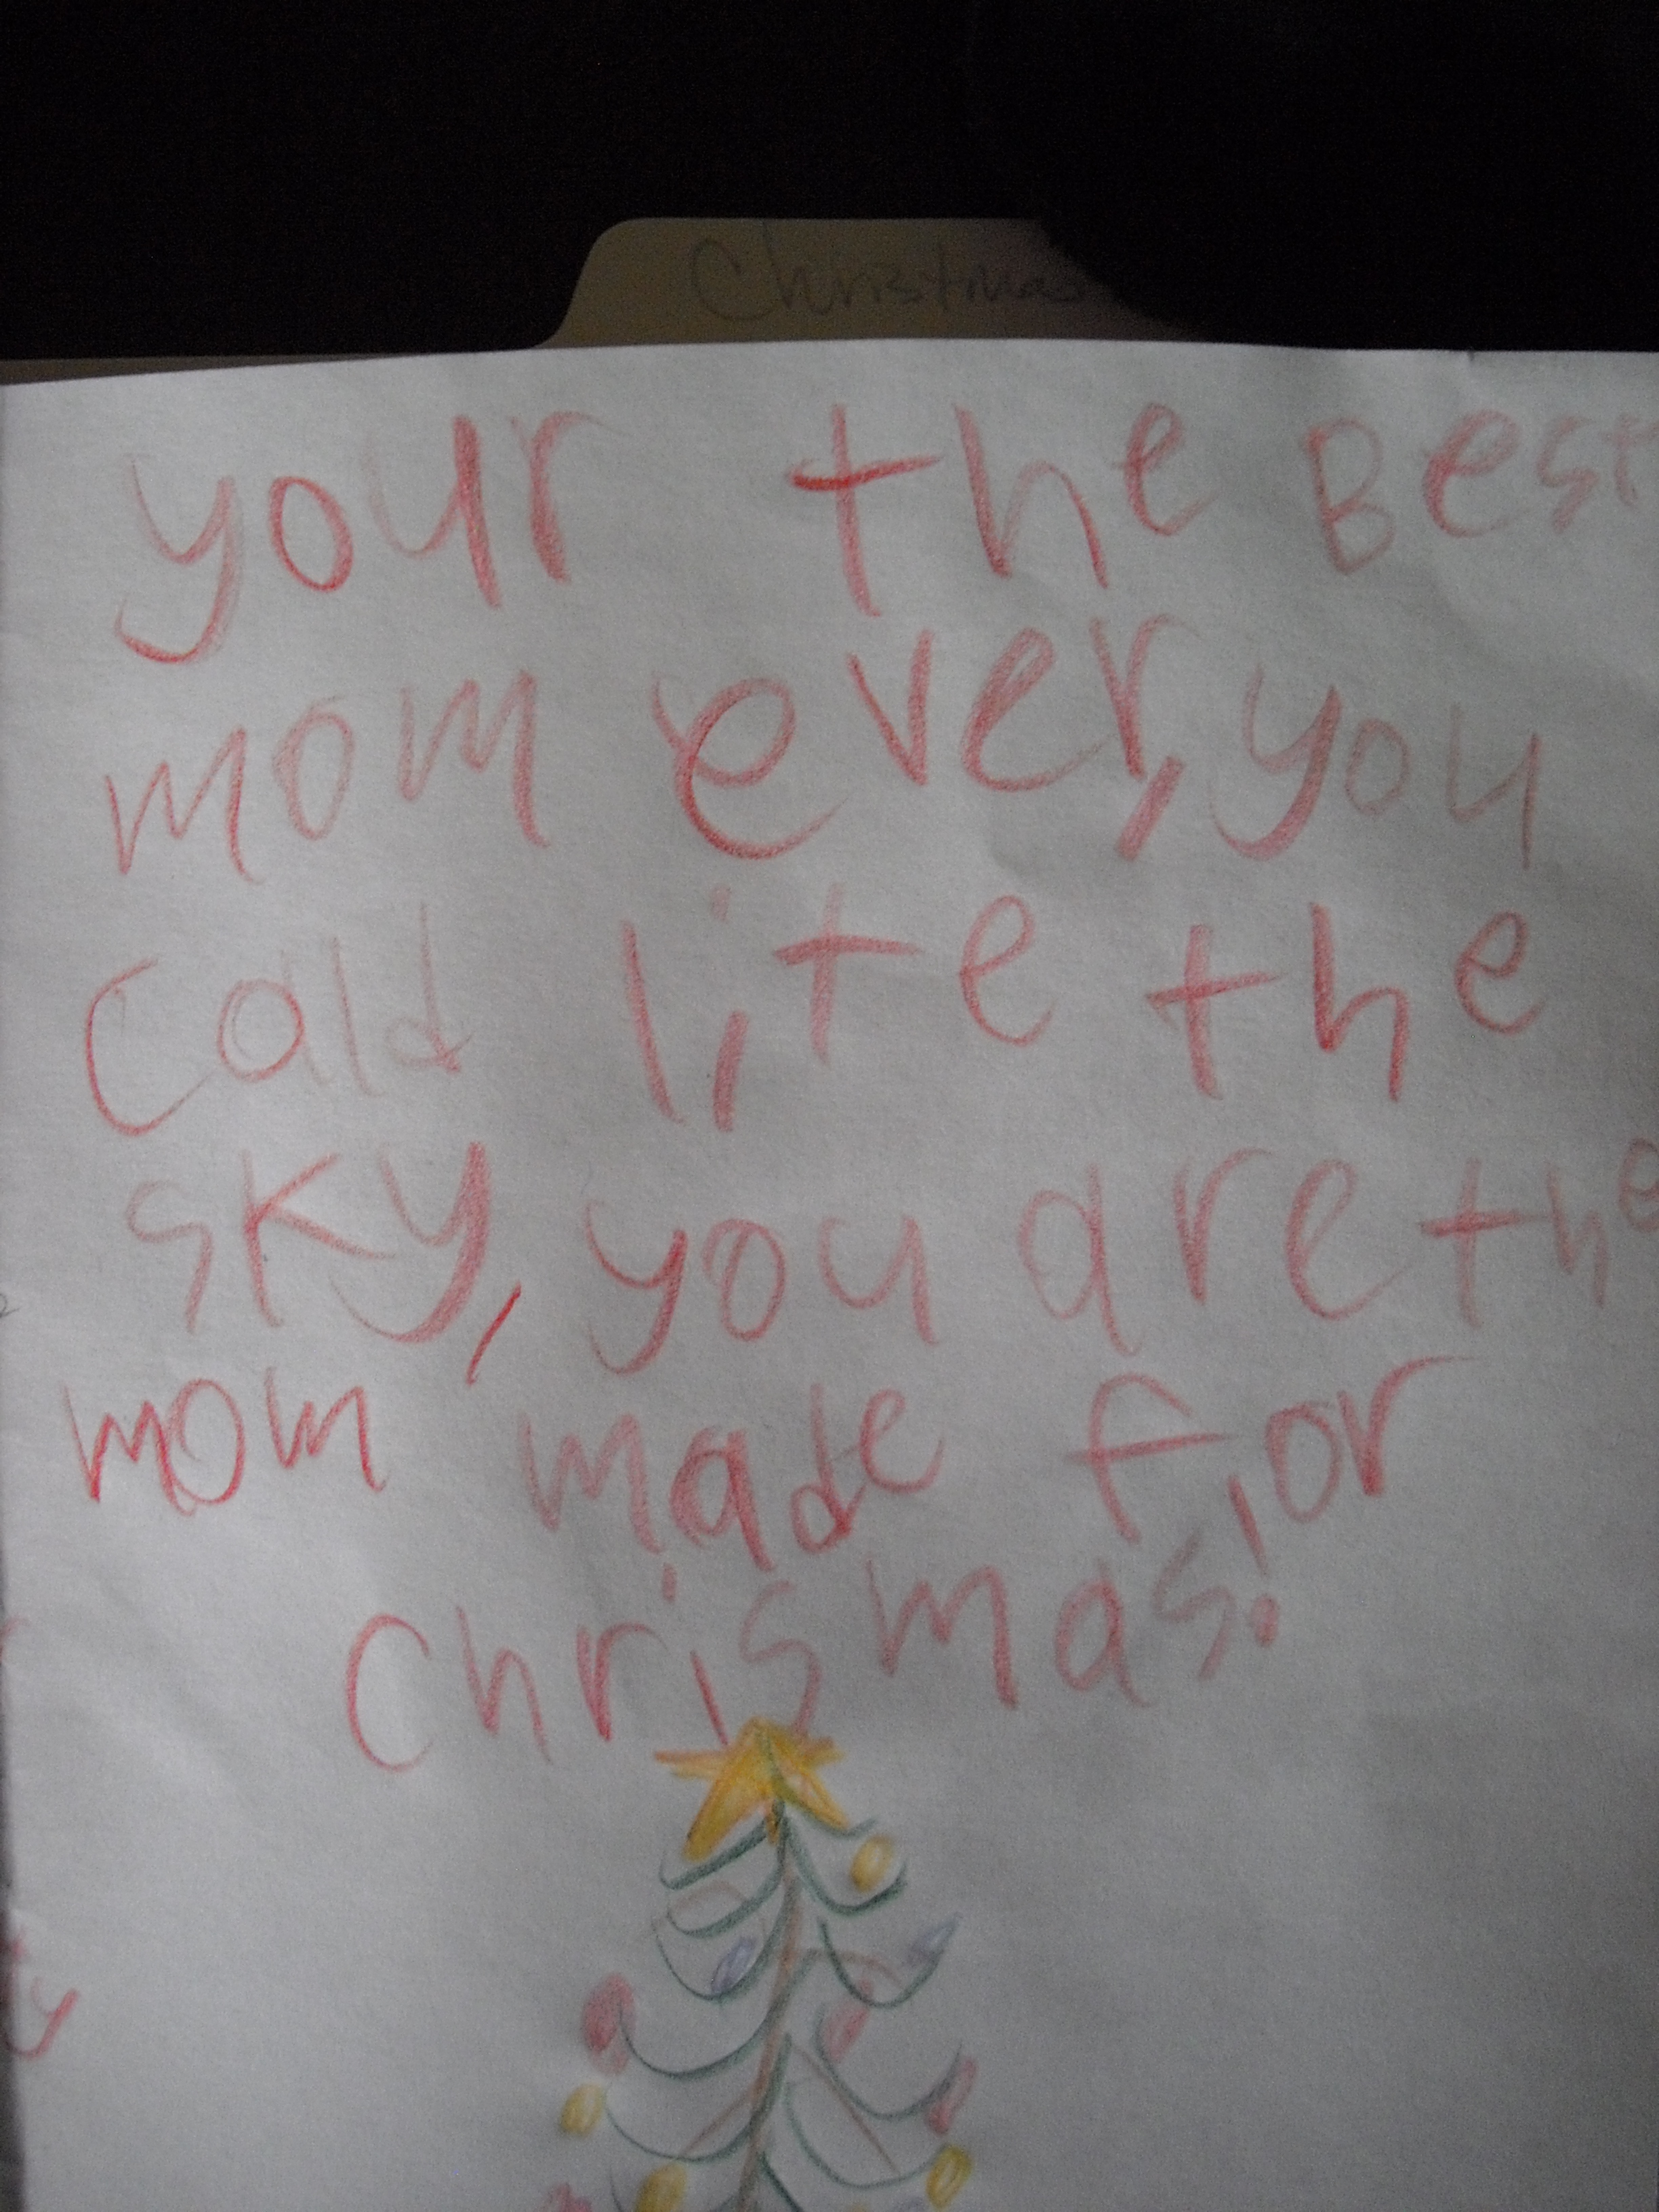 Christmas
your the Best
mom ever, you
Cald lite the
sky, you are the
mom made for
chrismas!